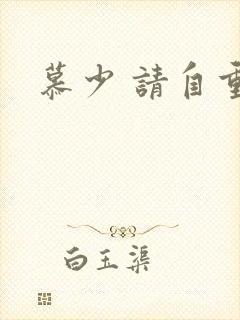 慕少請自重
白玉渠